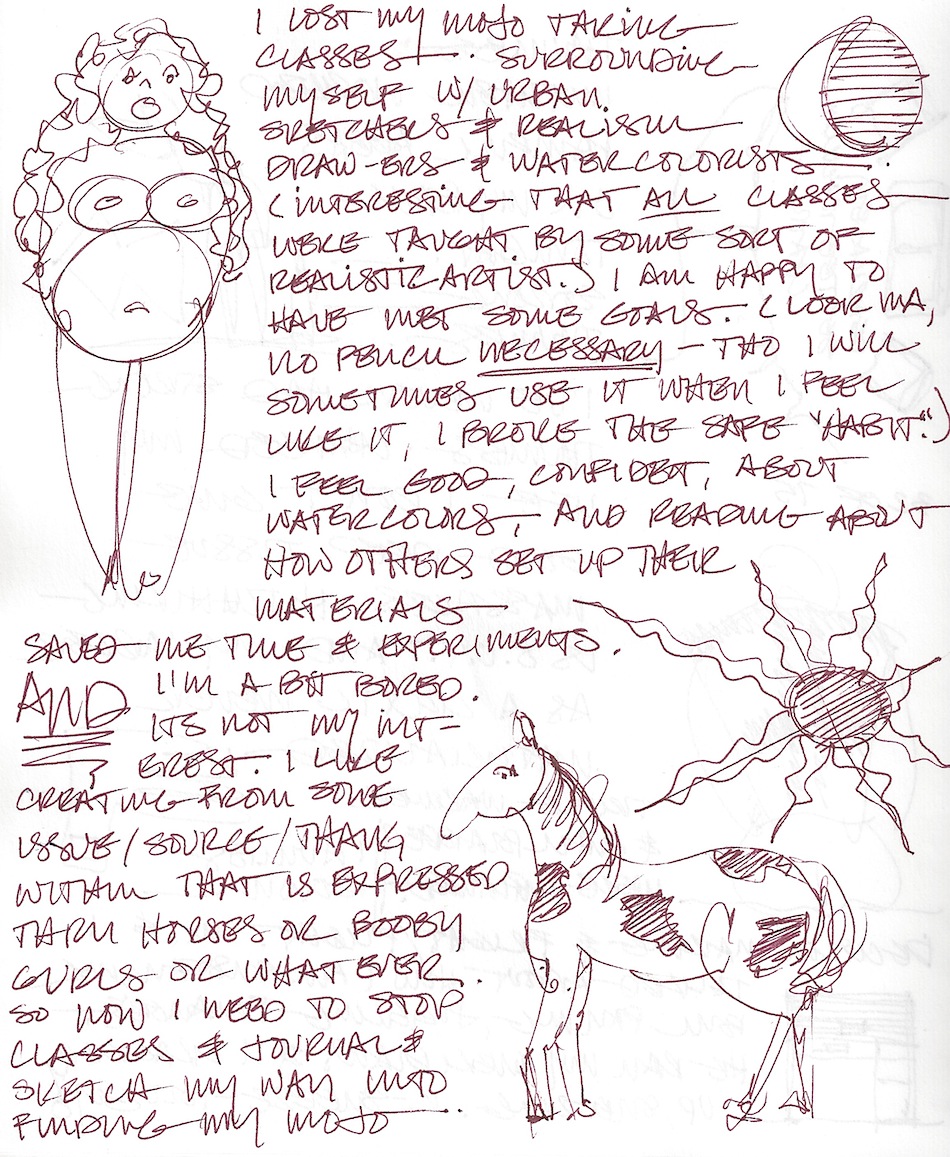 I LOST MY MOJO TAKING
CLASSES — . SURROUNDING
MYSELF W/ URBAN
SKETCHERS & REALISM
DRAW-ERS & WATERCOLORISTS — .
(INTERESTING THAT ALL CLASSES
WERE TAUGHT BY SOME SORT OF
REALISTIC ARTIST.) I AM HAPPY TO
HAVE MET SOME GOALS. (LOOK MA,
NO PENCIL NECESSARY — THO I WILL
SOMETIMES USE IT WHEN I FEEL
LIKE IT, I BROKE THE SAFE "HABIT.")
I FEEL GOOD, CONFIDENT, ABOUT
WATERCOLORS, AND READING ABOUT
HOW OTHERS SET UP THEIR
MATERIALS
SAVED ME TIME & EXPERIMENTS.
AND I'M A BIT BORED.
ITS NOT MY INT-
EREST. I LIKE
CREATING FROM SOME
ISSUE/SOURCE/THANG
WITHIN THAT IS EXPRESSED
THRU HORSES OR BOOBY
GURLS OR WHATEVER.
SO NOW I NEED TO STOP
CLASSES & JOURNAL &
SKETCH MY WAY INTO
FINDING MY MOJO — .